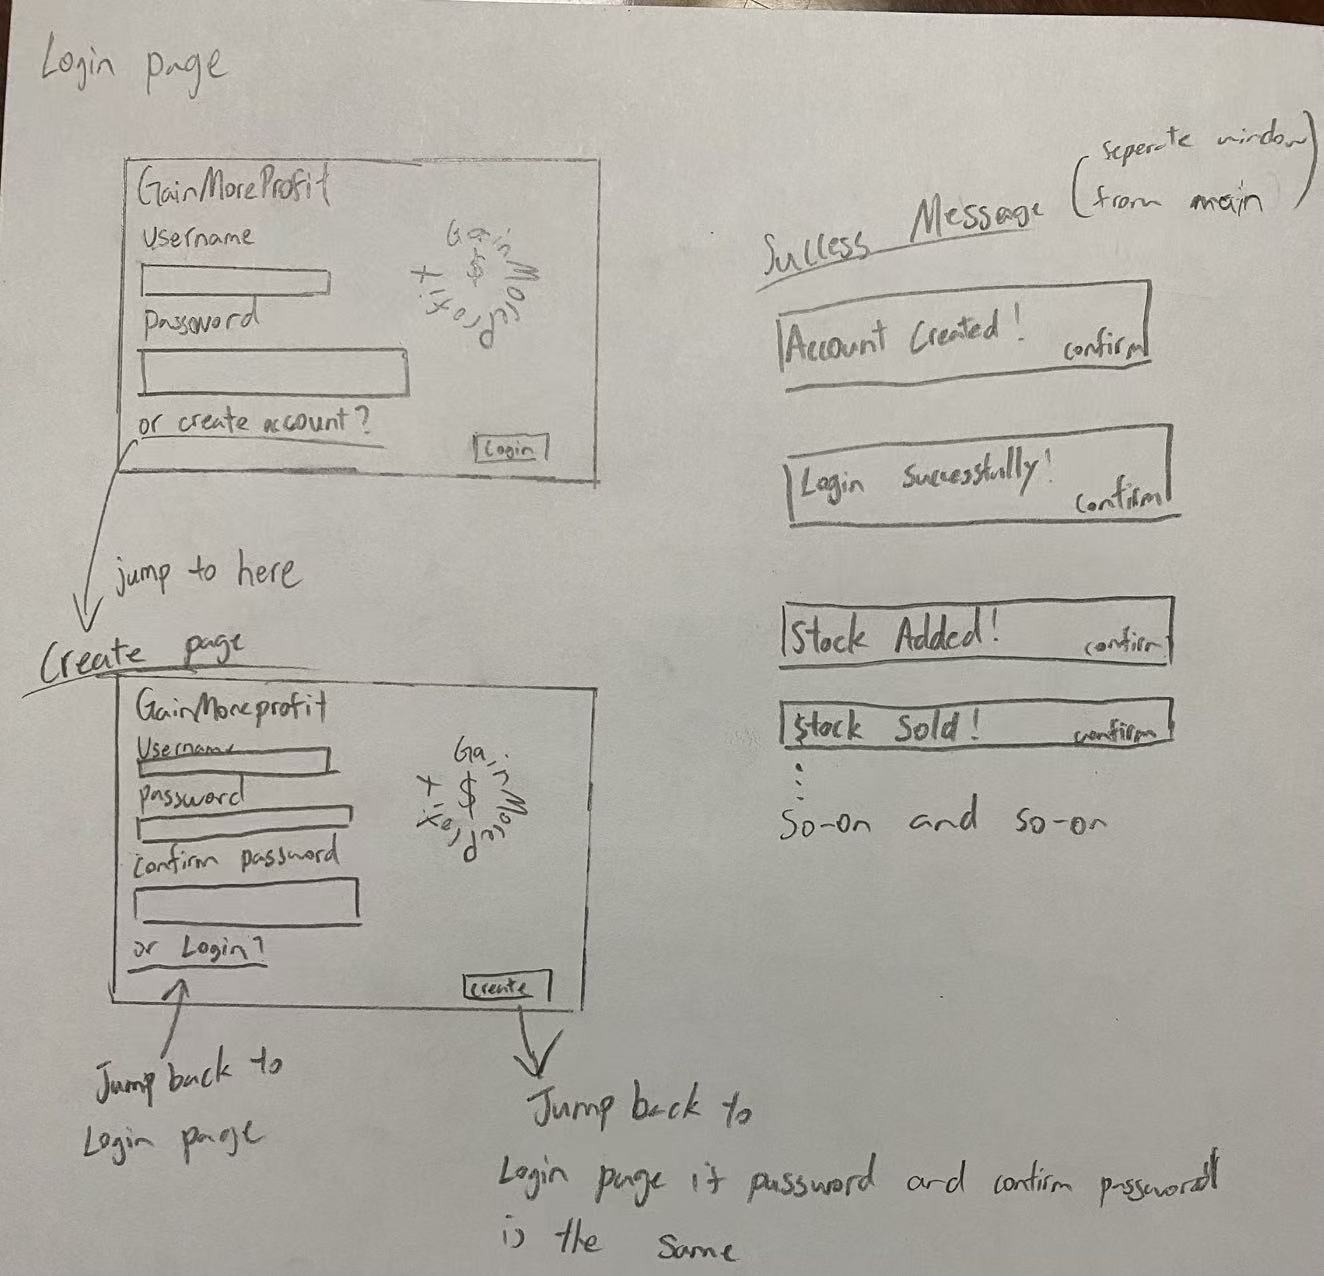 Login page
GainMoreProfit
Username
Password
or create account?
Login
GainMoreProfit
$
jump to here
Create page
GainMoreprofit
Username
password
confirm password
or Login?
create
GainMoreProfit
$
Jump back to
Login page
Jump back to
Login page if password and confirm password
is the same
Success Message (seperate window
from main)
Account Created!
confirm
Login Successfully!
confirm
Stock Added!
confirm
Stock Sold!
confirm
So-on and so-on